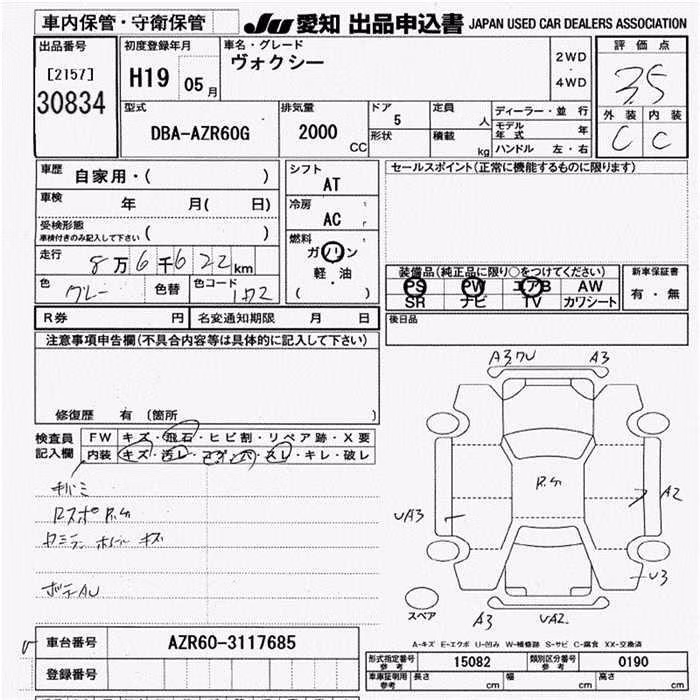 車内保管・守衛保管
JU 愛知 出品申込書 JAPAN USED CAR DEALERS ASSOCIATION
出品番号
[2157]
30834
初度登録年月
H19 05月
車名・グレード
ヴォクシー
2WD
・
4WD
評価点
3.5
外装 内装
C C
型式
DBA-AZR60G
排気量
2000
CC
ドア
5
形状
定員
人
積載
kg
ディーラー・並行
モデル年式 年
ハンドル 左・右
車歴
自家用・( )
車検
年 月( 日)
受検形態
車検付きのみ記入して下さい ( )
走行
8万6千622km
色
グレー
色替
色コード
1D2
シフト
AT
冷房
AC
燃料
ガソリン
軽・油
( )
セールスポイント(正常に機能するものに限ります)
装備品(純正品に限り○をつけてください)
PS PW エアB AW
SR ナビ TV カワシート
新車保証書
有・無
R券 円
名変通知期限 月 日
後日品
注意事項申告欄(不具合内容等は具体的に記入して下さい)
修復歴 有 〔箇所 〕
検査員
記入欄
FW キズ・飛石・ヒビ割・リペア跡・X要
内装 キズ・汚レ・コゲ・穴・スレ・キレ・破レ
A3.7U A3
R.S
A2
UA3
U3
A3 UA2.
スペア
ボデーAU
A-キズ E-エクボ U-凹み W-補修跡 S-サビ C-腐食 XX-交換済
車台番号
AZR60-3117685
登録番号
形式指定番号 参考
15082
類別区分番号 参考
0190
車庫証明用 参考
長さ cm
幅 cm
高さ cm